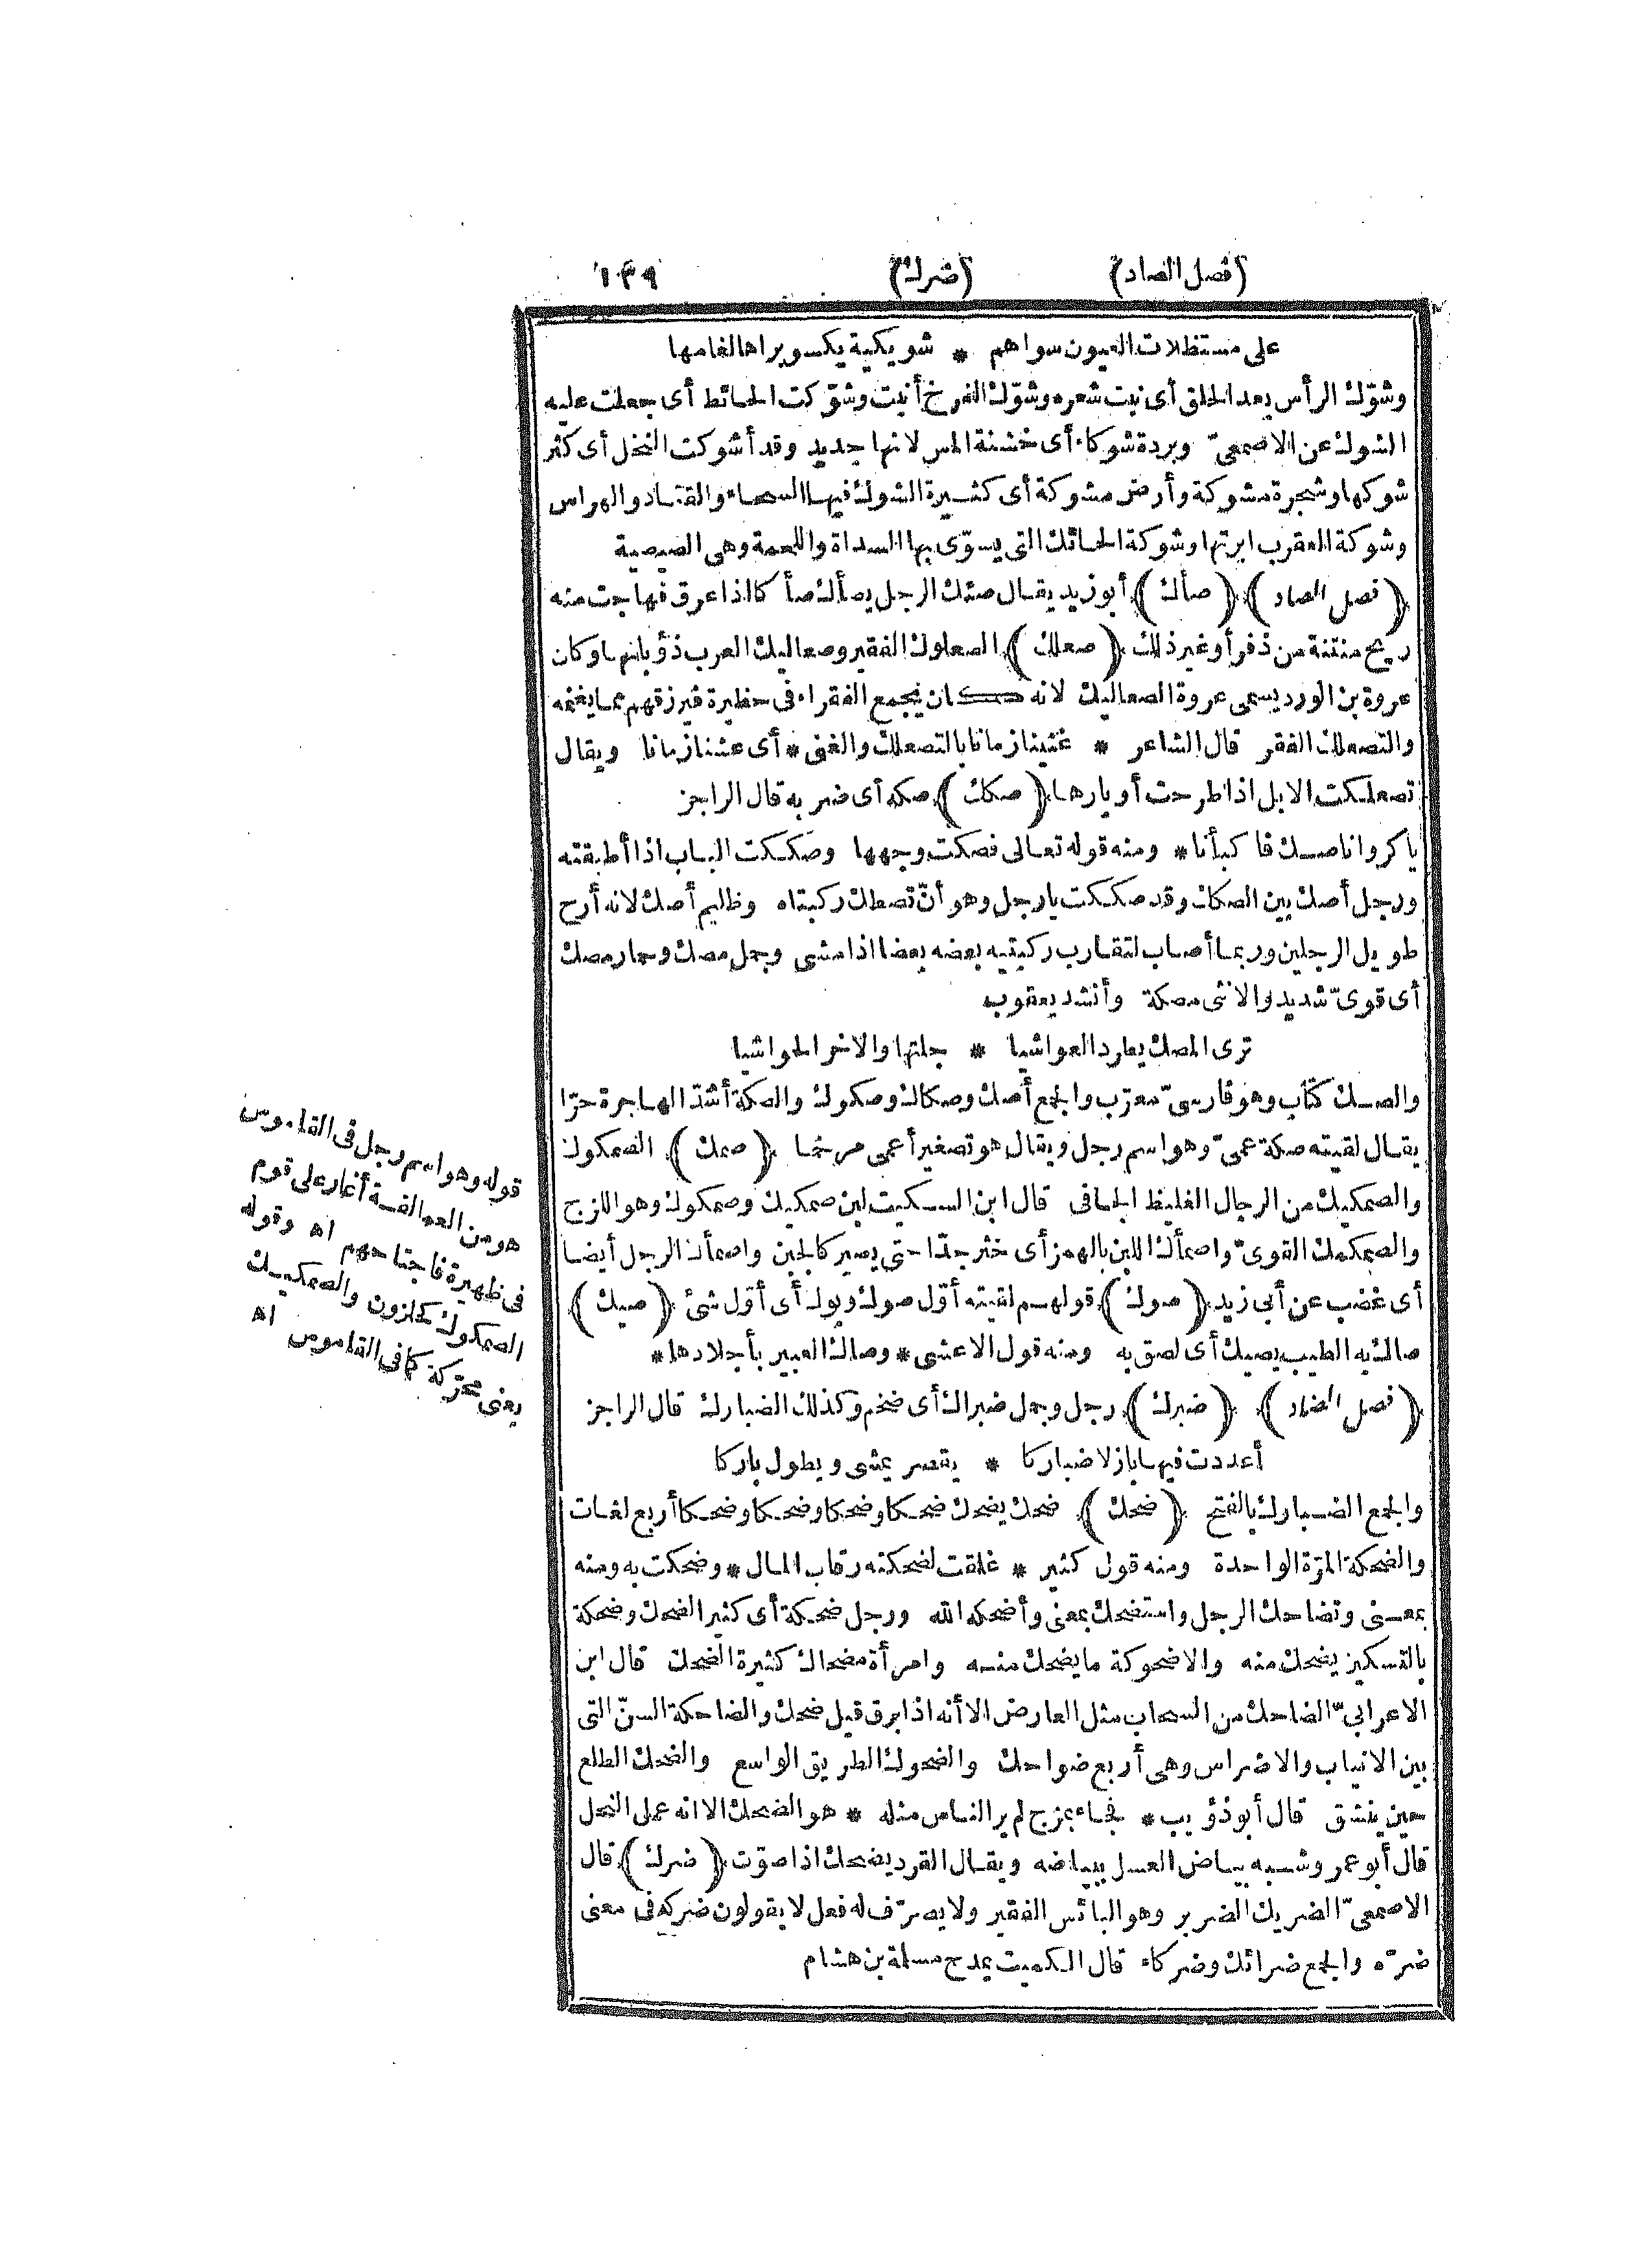 (فصل الصاد) (ضرك) ١٣٩
على مستظلات العيون سواهم * شويكية يكسو براها لغامها
وشوّك الرأس بعد الحلق أى نبت شعره وشوّك الفرخ أنبت وشوّكت الحائط أى جعلت عليه
الشوك عن الاصمعىّ وبردة شوكاء أى خشنة المس لانها جديد وقد أشوكت النخل أى كثر
شوكها وشجرة مشوكة وأرض مشوكة أى كثيرة الشوك فيها السحاء والقتاد والهراس
وشوكة العقرب ابرتها وشوكة الحائك التى يسوّى بها السداة واللحمة وهى الصيصية
(فصل الصاد) (صأك) أبو زيد يقال صئك الرجل يصأك صأ كا اذا عرق فهاجت منه
ريح منتنة من ذفر أو غير ذلك (صعلك) الصعلوك الفقير وصعاليك العرب ذؤبانها وكان
عروة بن الورد يسمى عروة الصعاليك لانه كان يجمع الفقراء فى حظيرة فيرزقهم مما يغنمه
والتصعلك الفقر قال الشاعر * غنينا زمانا بالتصعلك والغنى * أى عشنا زمانا ويقال
تصعلكت الابل اذا طرحت أوبارها (صكك) صكه أى ضربه قال الراجز
يا كروانا صك فا كبأنا * ومنه قوله تعالى فصكت وجهها وصككت الباب اذا أطبقته
ورجل أصك بين الصكك وقد صككت يا رجل وهو أنّ تصطك ركبتاه وظليم أصك لانه أرح
طويل الرجلين وربما أصاب لتقارب ركبتيه بعضه بعضا اذا مشى وجمل مصك وحمار مصك
أى قوىّ شديد والانثى مصكة وأنشد يعقوب
ترى المصك يطرد العواشيا * جلتها والاخر الحواشيا
والصك كتاب وهو فارسىّ معرّب والجمع أصك وصكاك وصكوك والصكة أشدّ الهاجرة حرّا
يقال لقيته صكة عمىّ وهو اسم رجل ويقال هو تصغير أعمى مرخما (صمك) الصمكوك
والصمكيك من الرجال الغليظ الجافى قال ابن السكيت لبن صمكيك وصمكوك وهو اللزج
والصمكمك القوىّ واصمأك اللبن بالهمز أى خثر جدّا حتى يصير كالجبن واصمأك الرجل أيضا
أى غضب عن أبى زيد (صوك) قولهم لقيته أوّل صوك وبوك أى أوّل شئ (صيك)
صاك به الطيب يصيك أى لصق به ومنه قول الاعشى * وصاك العبير بأجلادها *
(فصل الضاد) (ضبرك) رجل وجمل ضبراك أى ضخم وكذلك الضبارك قال الراجز
أعددت فيها بازلا ضباركا * يقصر يمشى ويطول باركا
والجمع الضبارك بالفتح (ضحك) ضحك يضحك ضحكا وضحكا وضحكا وضحكا أربع لغات
والضحكة المرّة الواحدة ومنه قول كثير * غلقت لضحكته رقاب المال * وضحكت به ومنه
بمعنى وتضاحك الرجل واستضحك بمعنى وأضحكه الله ورجل ضحكة أى كثير الضحك وضحكة
بالتسكين يضحك منه والاضحوكة ما يضحك منه وامرأة مضحاك كثيرة الضحك قال ابن
الاعرابىّ الضاحك من السحاب مثل العارض الا أنه اذا برق قيل ضحك والضاحكة السنّ التى
بين الانياب والاضراس وهى أربع ضواحك والضحوك الطريق الواسع والضحك الطلع
حين ينشق قال أبو ذؤيب * فجاء بمزج لم ير الناس مثله * هو الضحك الا انه عمل النحل
قال أبو عمرو شبه بياض العسل ببياضه ويقال القرد يضحك اذا صوّت (ضرك) قال
الاصمعىّ الضريك الضرير وهو البائس الفقير ولا يصرّف له فعل لا يقولون ضركه فى معنى
ضرّه والجمع ضرائك وضركاء قال الكميت يمدح مسلمة بن هشام
قوله وهو اسم رجل فى القاموس
هو من العمالقة أغار على قوم
فى ظهيرة فاجتاحهم اه وقوله
الصمكوك كحلزون والصمكيك
يعنى محرّكة كما فى القاموس اه